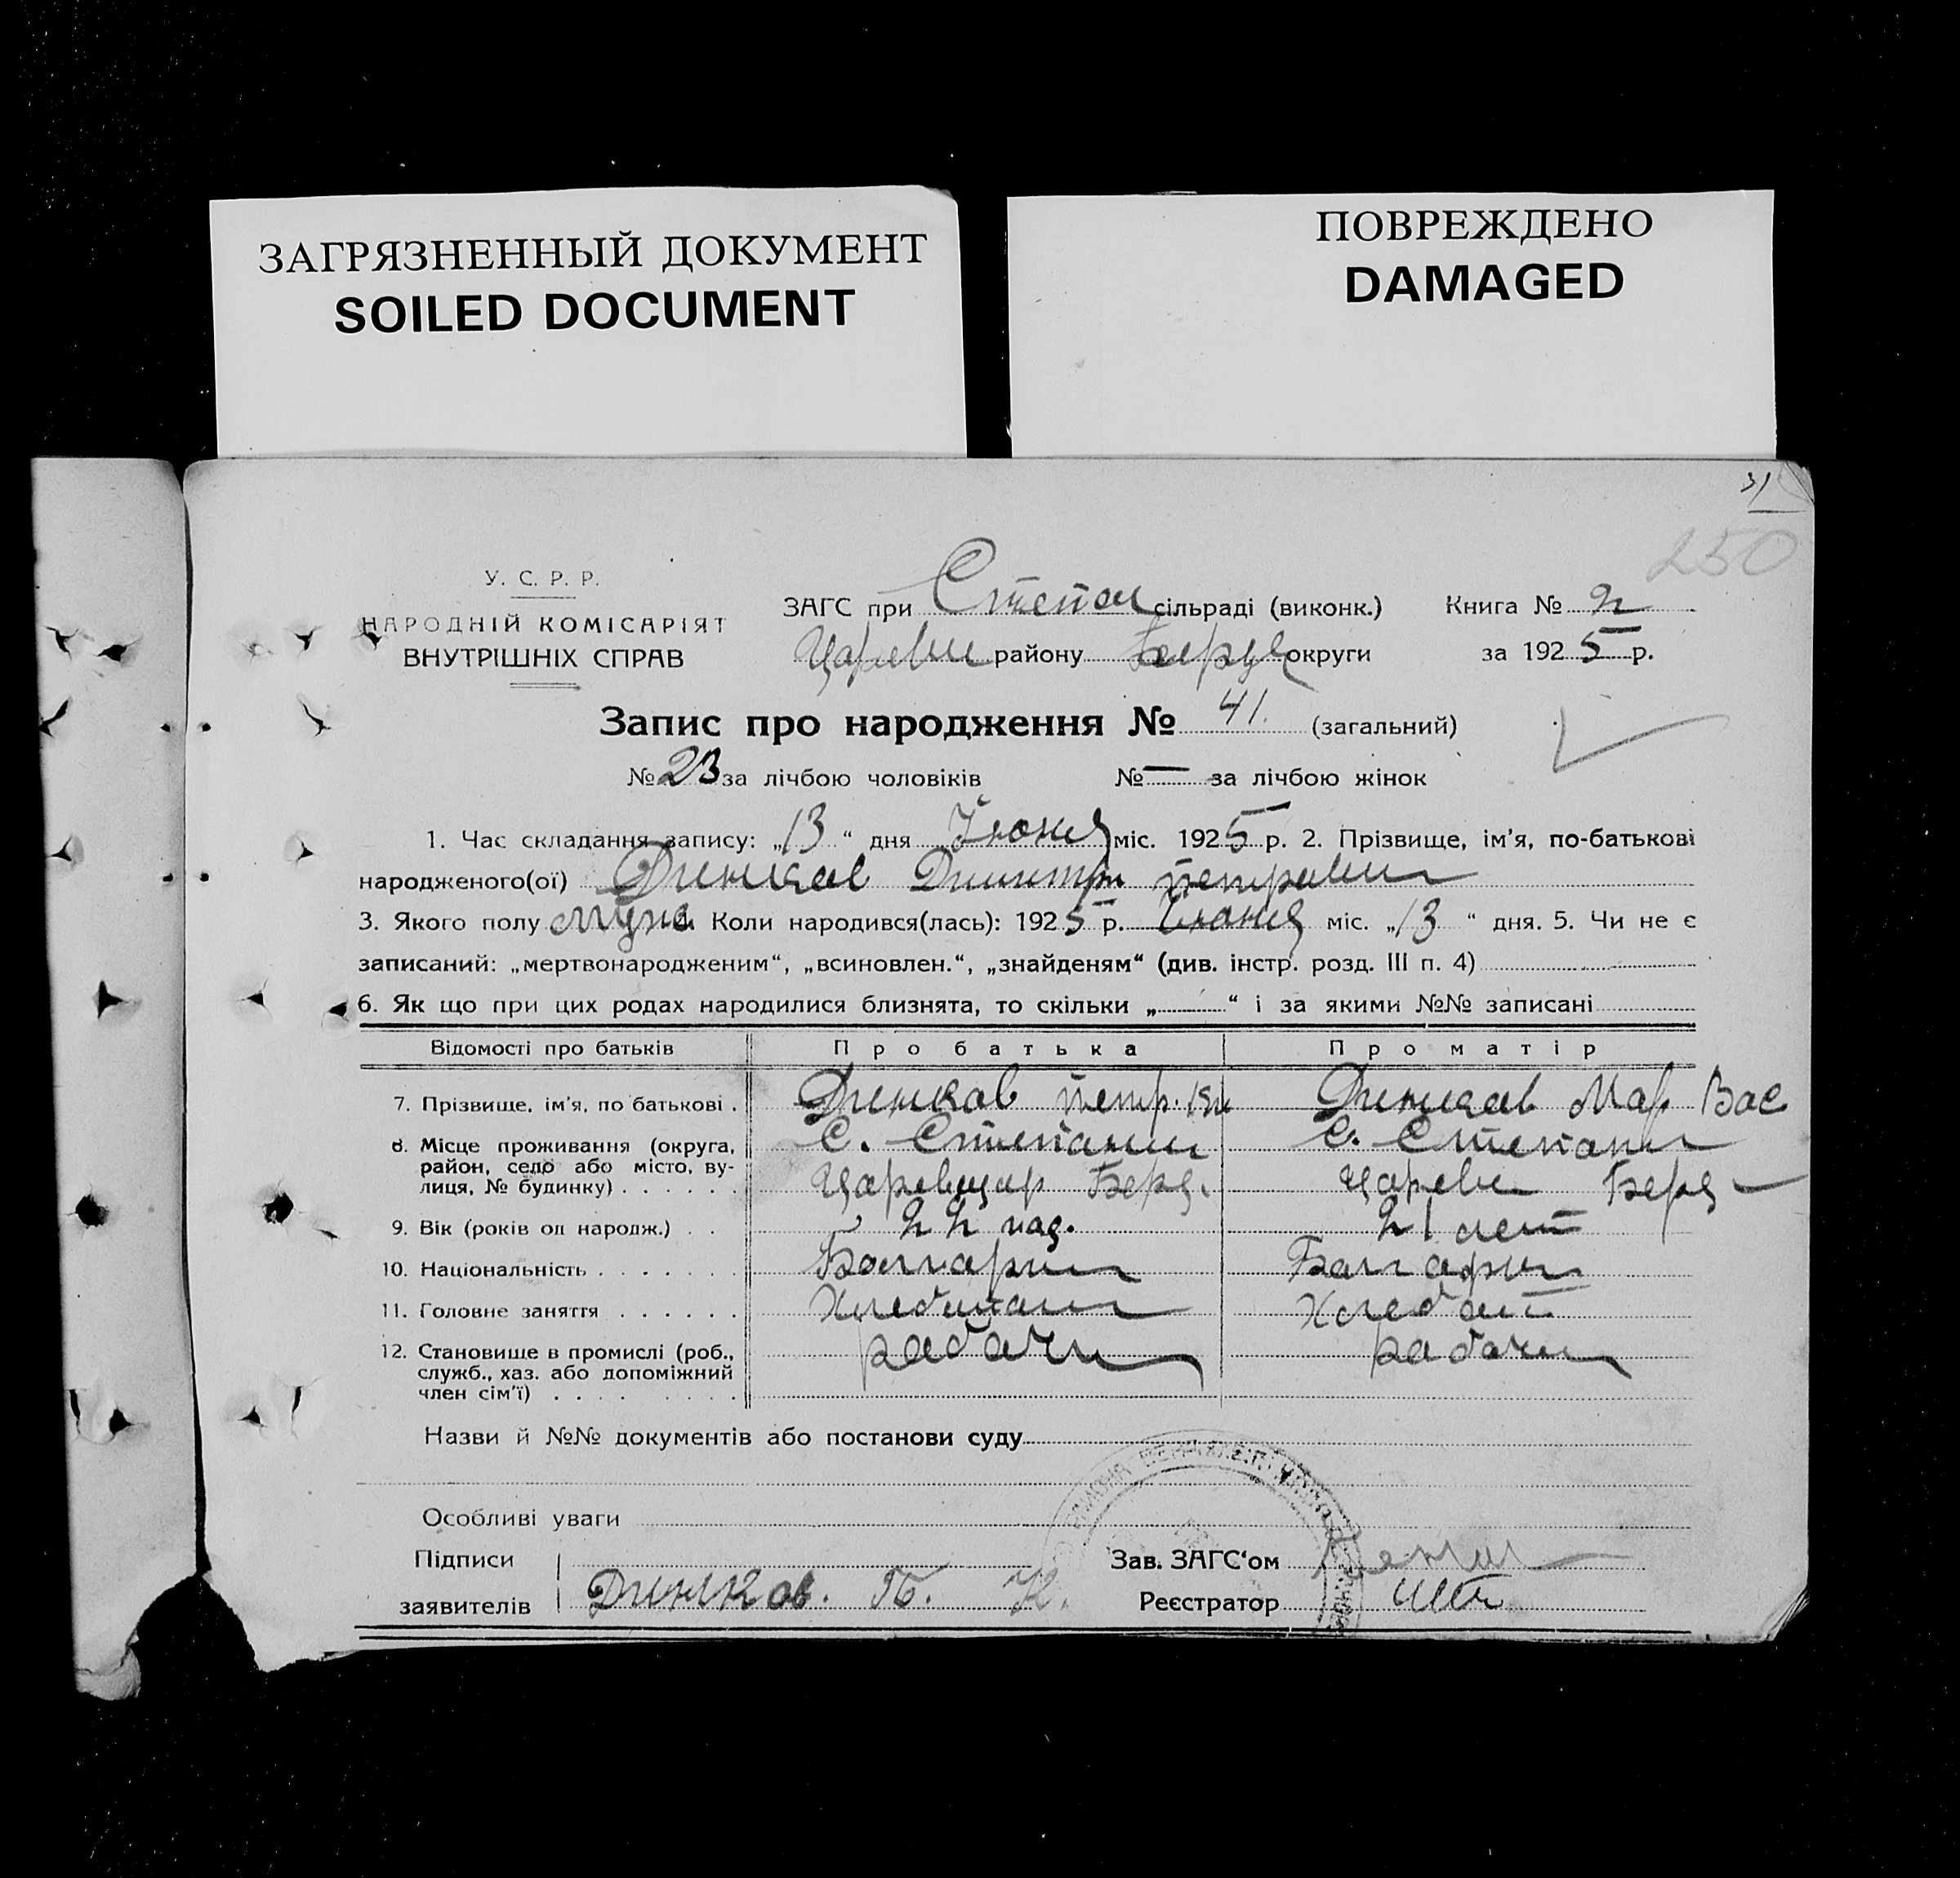 ЗАГРЯЗНЕННЫЙ ДОКУМЕНТ
SOILED DOCUMENT
ПОВРЕЖДЕНО
DAMAGED
31
250
У. С. Р. Р.
НАРОДНІЙ КОМІСАРІЯТ
ВНУТРІШНІХ СПРАВ
ЗАГС при Степан сільраді (виконк.) Книга № 2
Цареви району Бердя округи за 1925 р.
Запис про народження № 41. (загальний)
№ 23 за лічбою чоловіків № — за лічбою жінок
1. Час складання запису: „13“ дня Июня міс. 1925 р. 2. Прізвище, ім'я, по-батькові
народженого(ої) Динков Дмитри Петрович
3. Якого полу муж. Коли народився(лась): 1925 р. Июня міс. „13“ дня. 5. Чи не є
записаний: „мертвонародженим“, „всиновлен.“, „знайденям“ (див. інстр. розд. III п. 4)
6. Як що при цих родах народилися близнята, то скільки „ “ і за якими №№ записані
Відомості про батьків Про батька Про матір
7. Прізвище, ім'я, по батькові . Динков Петр. Динков Мар Вас
8. Місце проживання (округа, район, село або місто, вулиця, № будинку) . . . . . . С. Степани С. Степани
Царевщар Берд. Цареви Берд
9. Вік (років од народж.) . . 22 год. 21 лет
10. Національність . . . . . . . Болгарин Балгарин
11. Головне заняття . . . . . . Хлебопаш Хлебоп
12. Становище в промислі (роб., служб., хаз. або допоміжний член сім'ї) . . . . . . . рабочи рабочи
Назви й №№ документів або постанови суду
Особливі уваги
Підписи Зав. ЗАГС'ом
заявителів Динков. П. К. Реєстратор